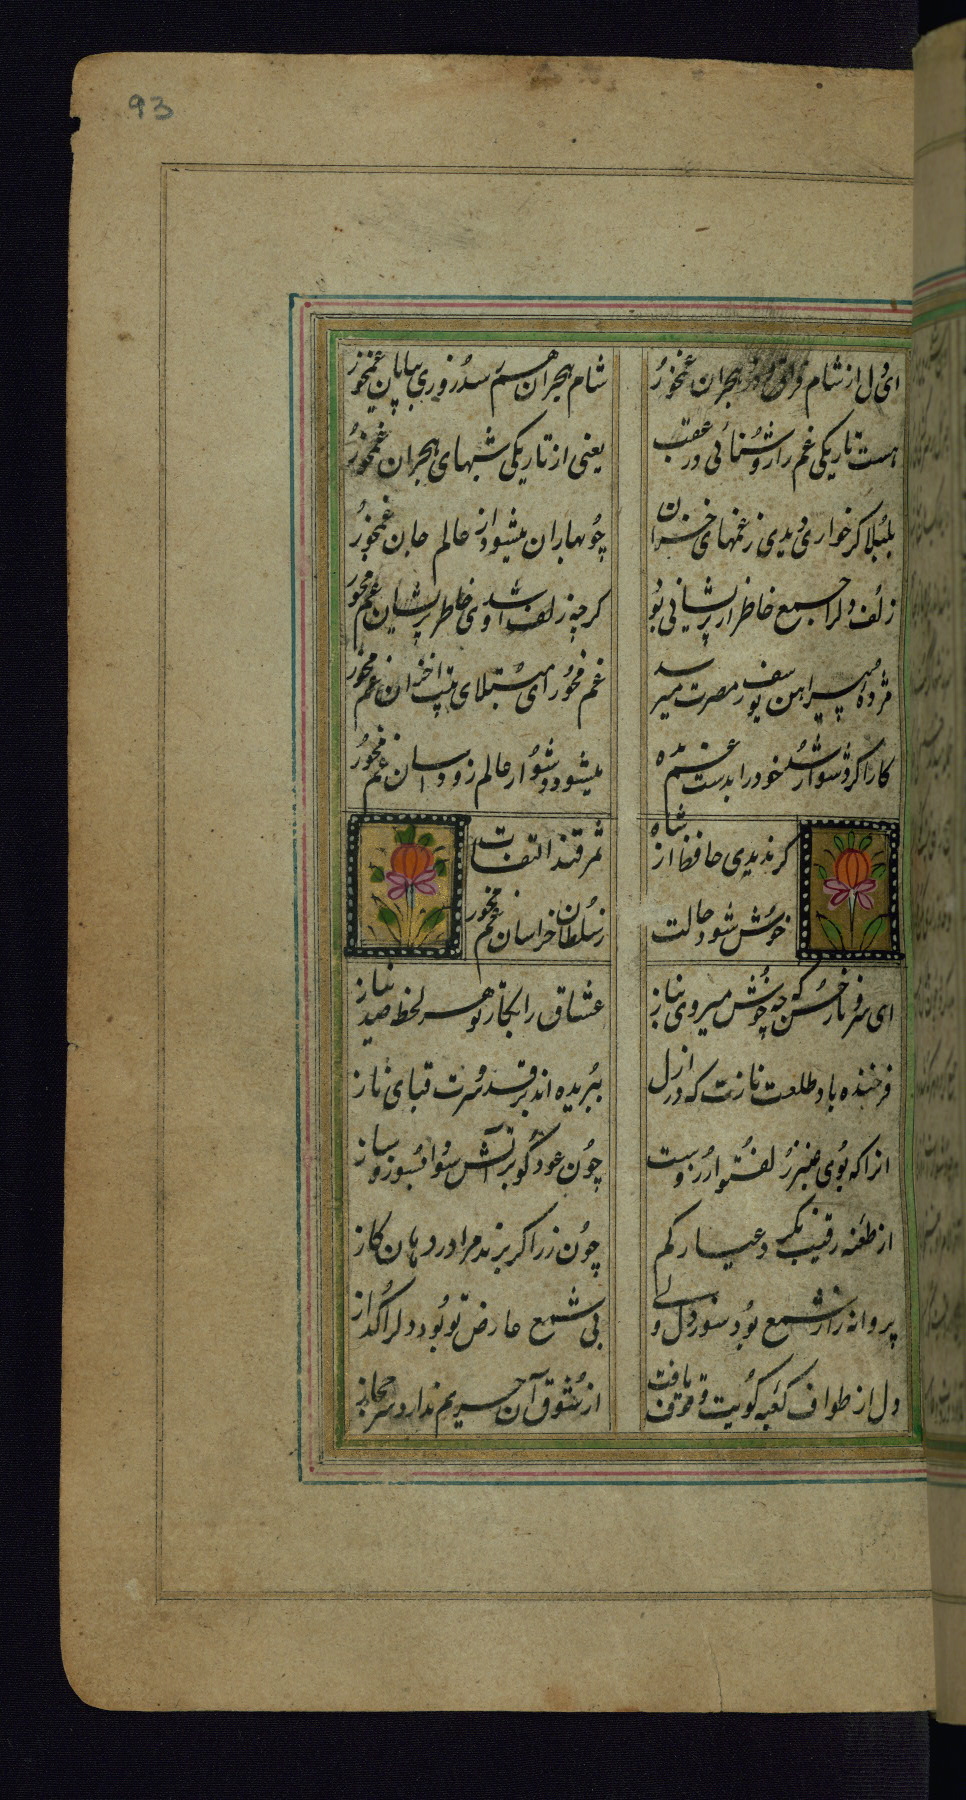 93
ای دل از شام فراق و روز هجران غم مخور
شام هجران هم رسد روزی بپایان غم مخور
هست تاریکی غم را روشنائی در عقب
یعنی از تاریکی شبهای هجران غم مخور
بلبلا کر خواری دیدی ز غمهای خزان
چون بهاران میشود از عالم جان غم مخور
زلف دلرا جمع خاطر از پریشانی بود
کرچه زلف شد وی خاطر پریشان غم مخور
مژده پیراهن یوسف بمصرت میرسد
غم مخور ای مبتلای غم مخور
کار اکر دشوار شد خود را بدست غم مده
میشود دشوار عالم زود آسان غم مخور
کر ندیدی حافظا از شاه
ثمرقند التفات
خوش شود حالت
ز سلطان خراسان غم مخور
ای سرو ناز حسن که چه خوش میروی بناز
عشاق را بناز تو هر لحظه صد نیاز
فرخنده باد طلعت نازت که در ازل
ببریده اند بر قد سروت قبای ناز
انرا که بوی عنبر زلف تو ارزوست
چون عود کو بر آتش سودا بسوز و ساز
از طعنه رقیب نکردد عیار کم
چون زر اکر برند مرا در دهان کاز
پروانه را ز شمع بود سوز دل ولی
بی شمع عارض تو بود دلرا کداز
دل از طواف کعبه کویت وقوف یافت
از شوق آن حریم ندارد سر حجاز